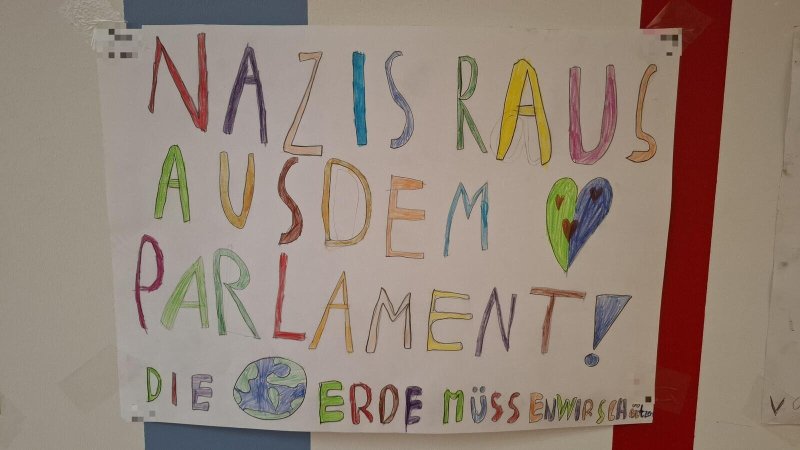 NAZIS RAUS
AUS DEM
PARLAMENT!
DIE ERDE MÜSSEN WIR SCHützen